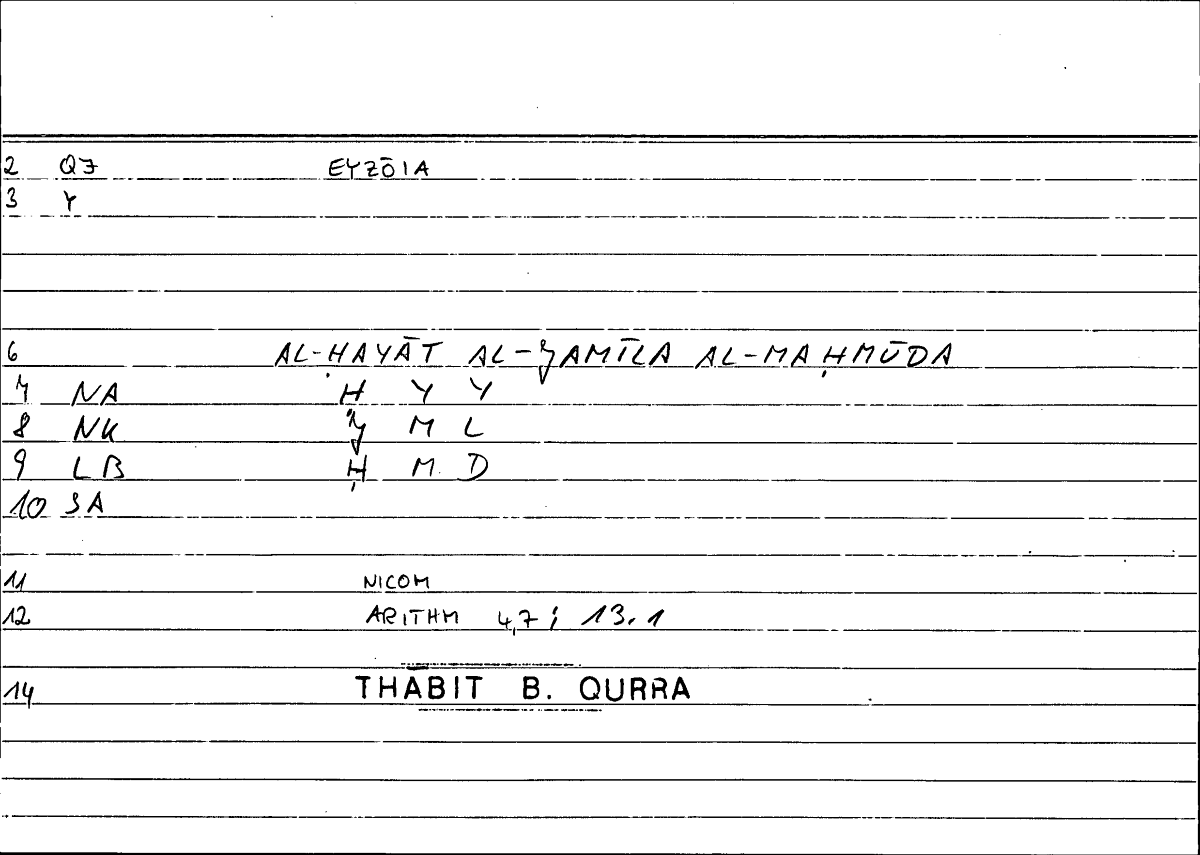 2 QJ EYZŌIA
3 Y
6 AL-ḤAYĀT AL-ǦAMĪLA AL-MAḤMŪDA
7 NA Ḥ Y Y
8 NK Ǧ M L
9 LB Ḥ M D
10 SA
11 NICOM
12 ARITHM 4,7; 13.1
14 THĀBIT B. QURRA